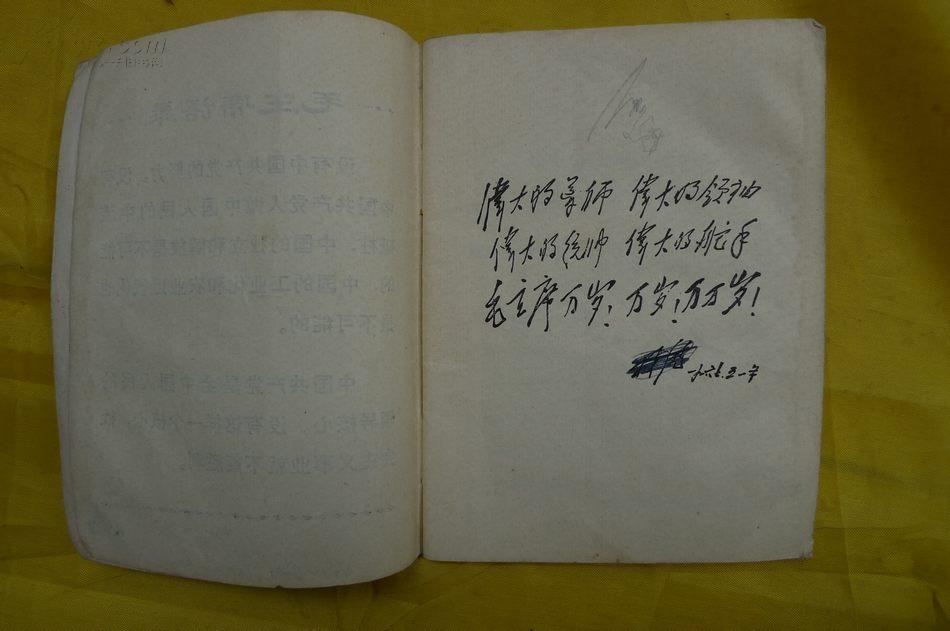 毛主席语录
没有中国共产党的努力，没有
中国共产党人做中国人民的中流
砥柱，中国的独立和解放是不可能
的，中国的工业化和农业近代化也
是不可能的。
中国共产党是全中国人民的
领导核心。没有这样一个核心，社
会主义事业就不能胜利。
偉大的导师 偉大的领袖
偉大的统帅 偉大的舵手
毛主席万岁！万岁！万万岁！